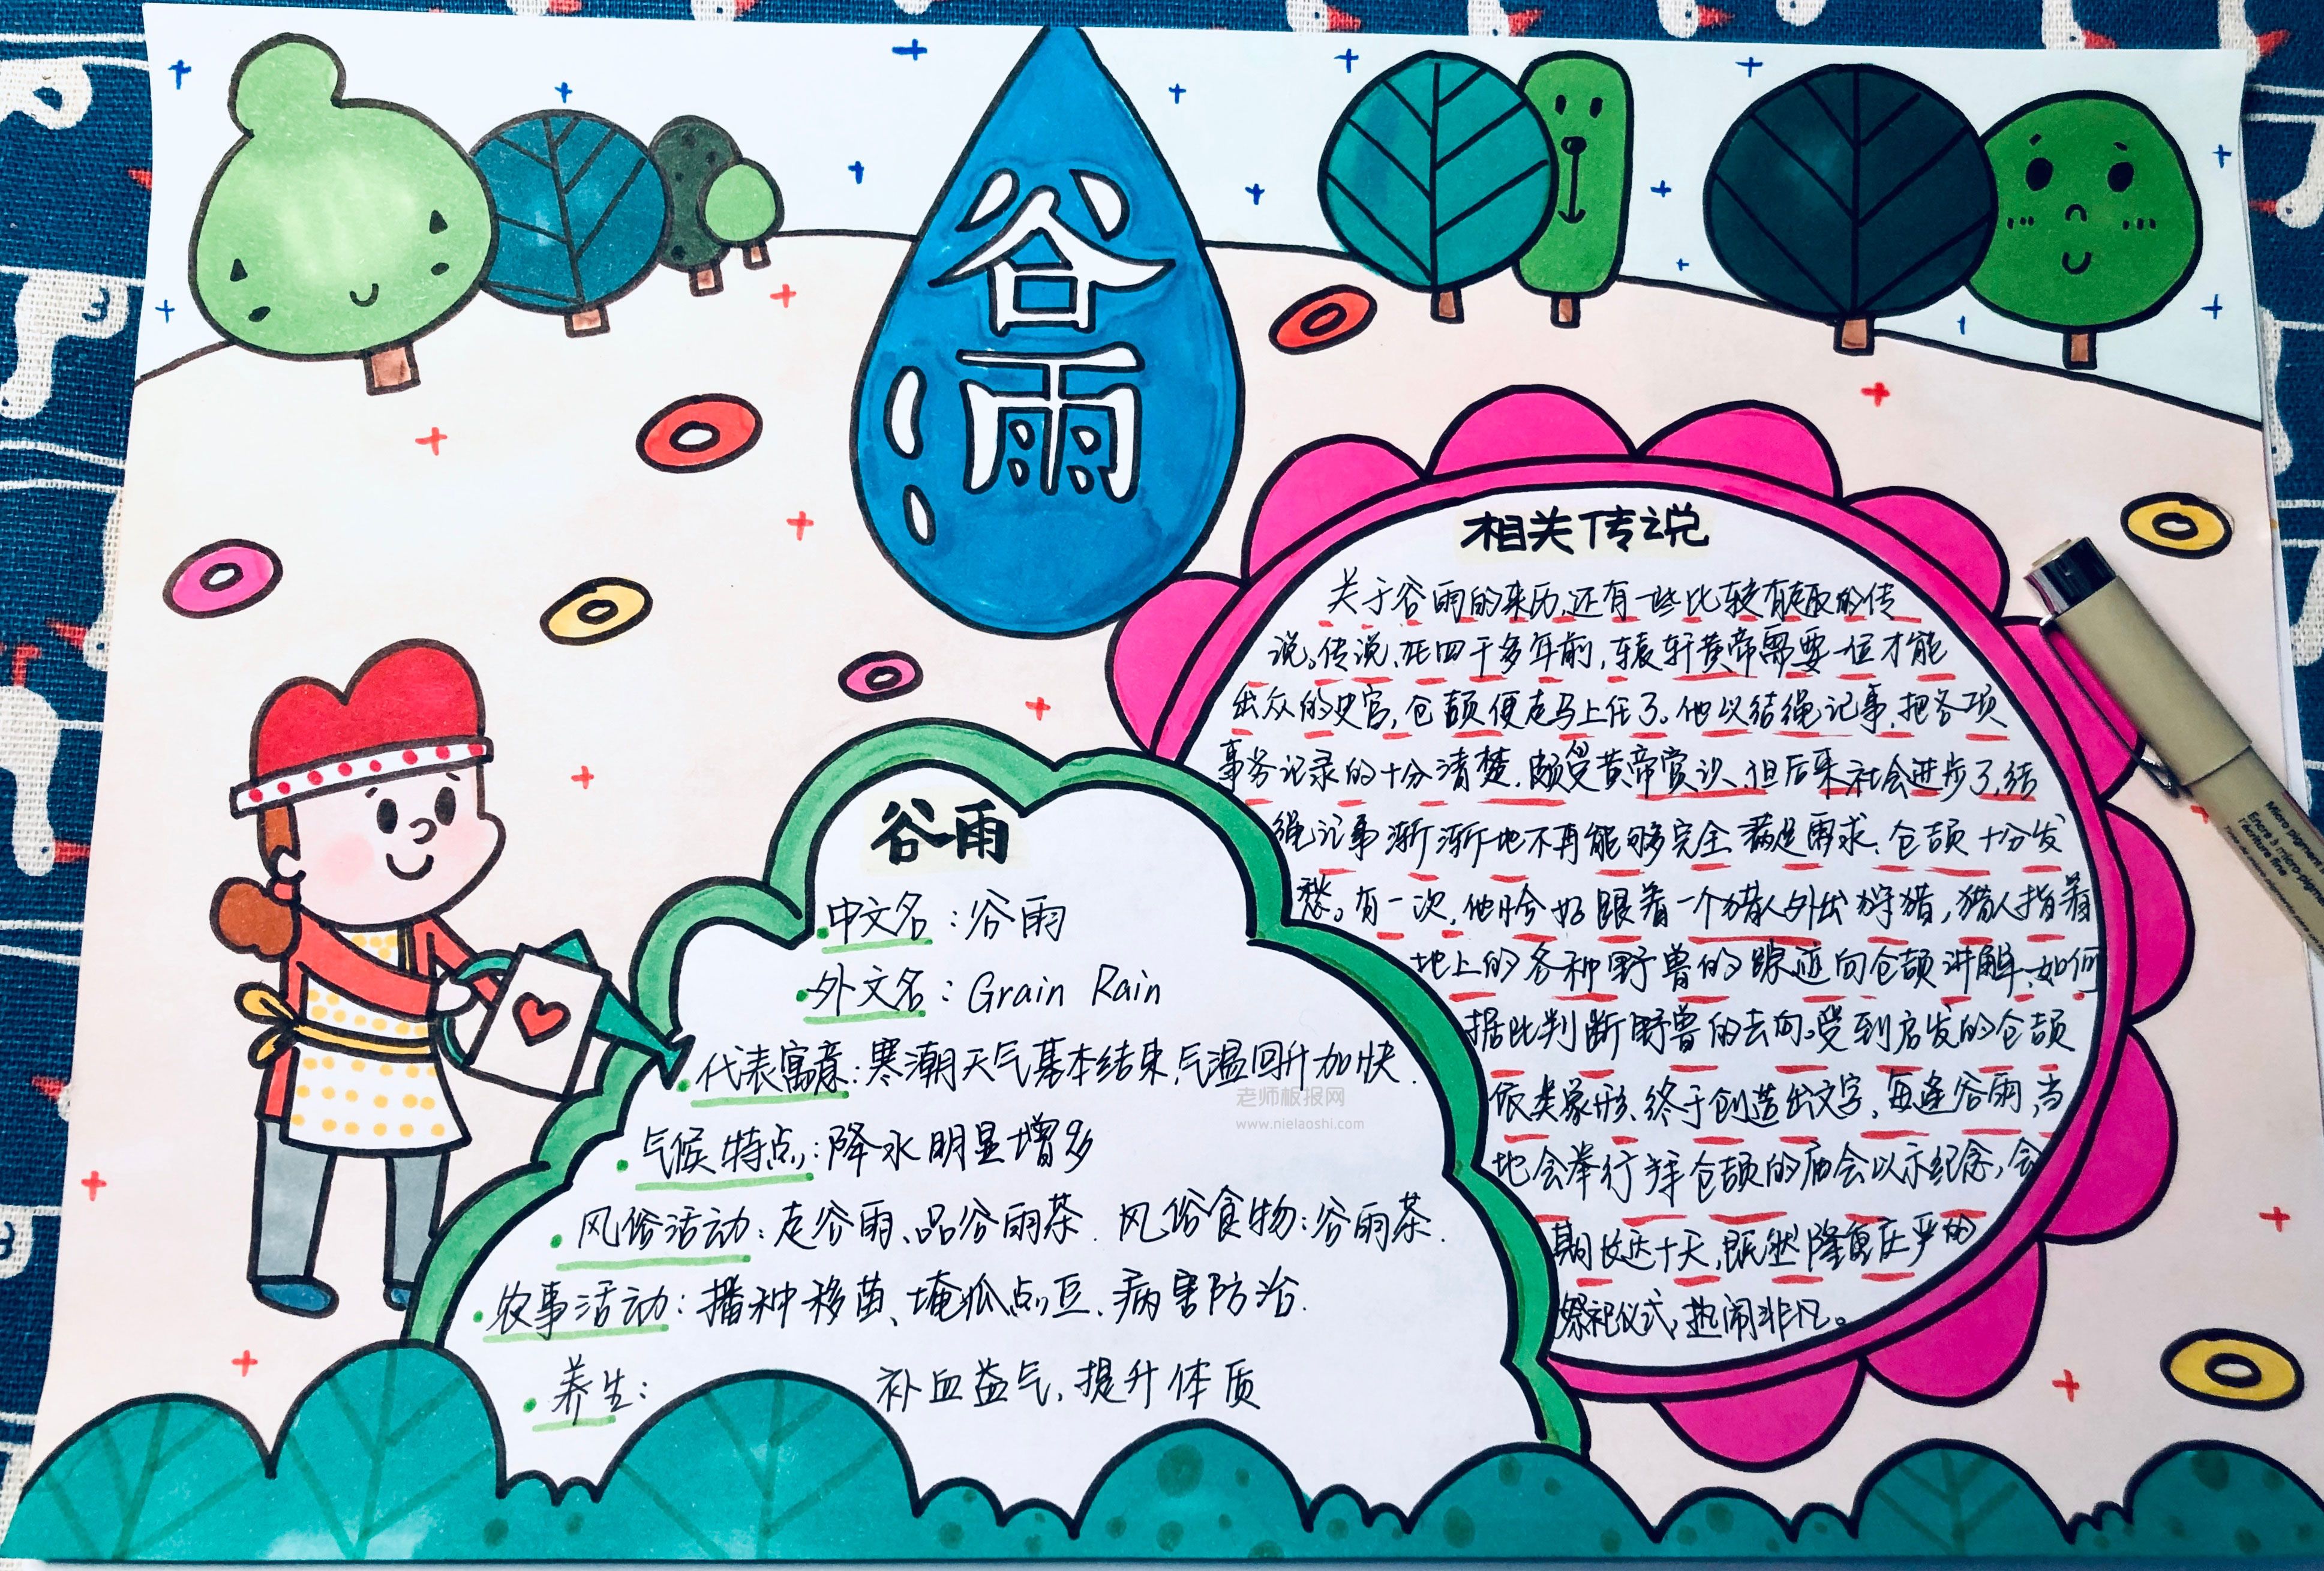 谷
雨
相关传说
关于谷雨的来历,还有一些比较有趣的传
说。传说,在四千多年前,轩轩黄帝需要一位才能
出众的史官,仓颉便走马上任了。他以结绳记事,把各项
事务记录的十分清楚,颇受黄帝赏识、但后来社会进步了,结
绳记事渐渐地不再能够完全满足需求、仓颉十分发
愁。有一次,他恰好跟着一个猎人外出狩猎,猎人指着
地上的各种野兽的踪迹向仓颉讲解、如何
据此判断野兽的去向。受到启发的仓颉
依类象形、终于创造出文字、每逢谷雨,当
地会举行拜仓颉的庙会以示纪念,会
期长达十天,既然隆重庄严的
祭祀仪式,热闹非凡。
谷雨
中文名:谷雨
外文名:Grain Rain
代表寓意:寒潮天气基本结束,气温回升加快.
气候特点:降水明显增多
风俗活动:走谷雨、品谷雨茶. 风俗食物:谷雨茶.
农事活动:播种移苗、埯瓜点豆、病害防治.
养生: 补血益气,提升体质
老师板报网
www.nielaoshi.com